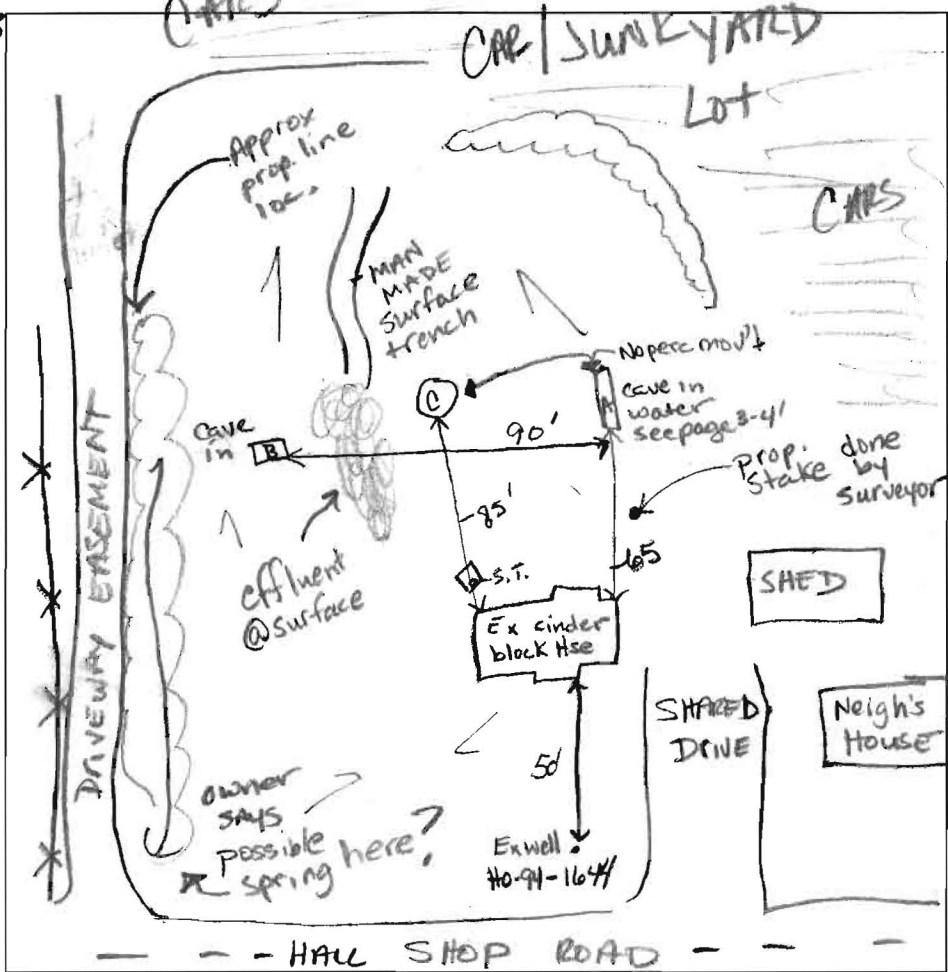 CARS
CAR/JUNKYARD
Lot
Approx
prop. line
loc.
CARS
MAN
MADE
surface
trench
No perc mov't
C
A
cave in
water
seepage 3-4'
Cave
in
B
90'
prop.
stake done
by
surveyor
85'
65
effluent
@ surface
S.T.
SHED
Ex cinder
block Hse
DRIVEWAY EASEMENT
SHARED
DRIVE
Neigh's
HOUSE
50'
owner
says
possible
spring here?
Ex well
HO-94-1644
HALL SHOP ROAD